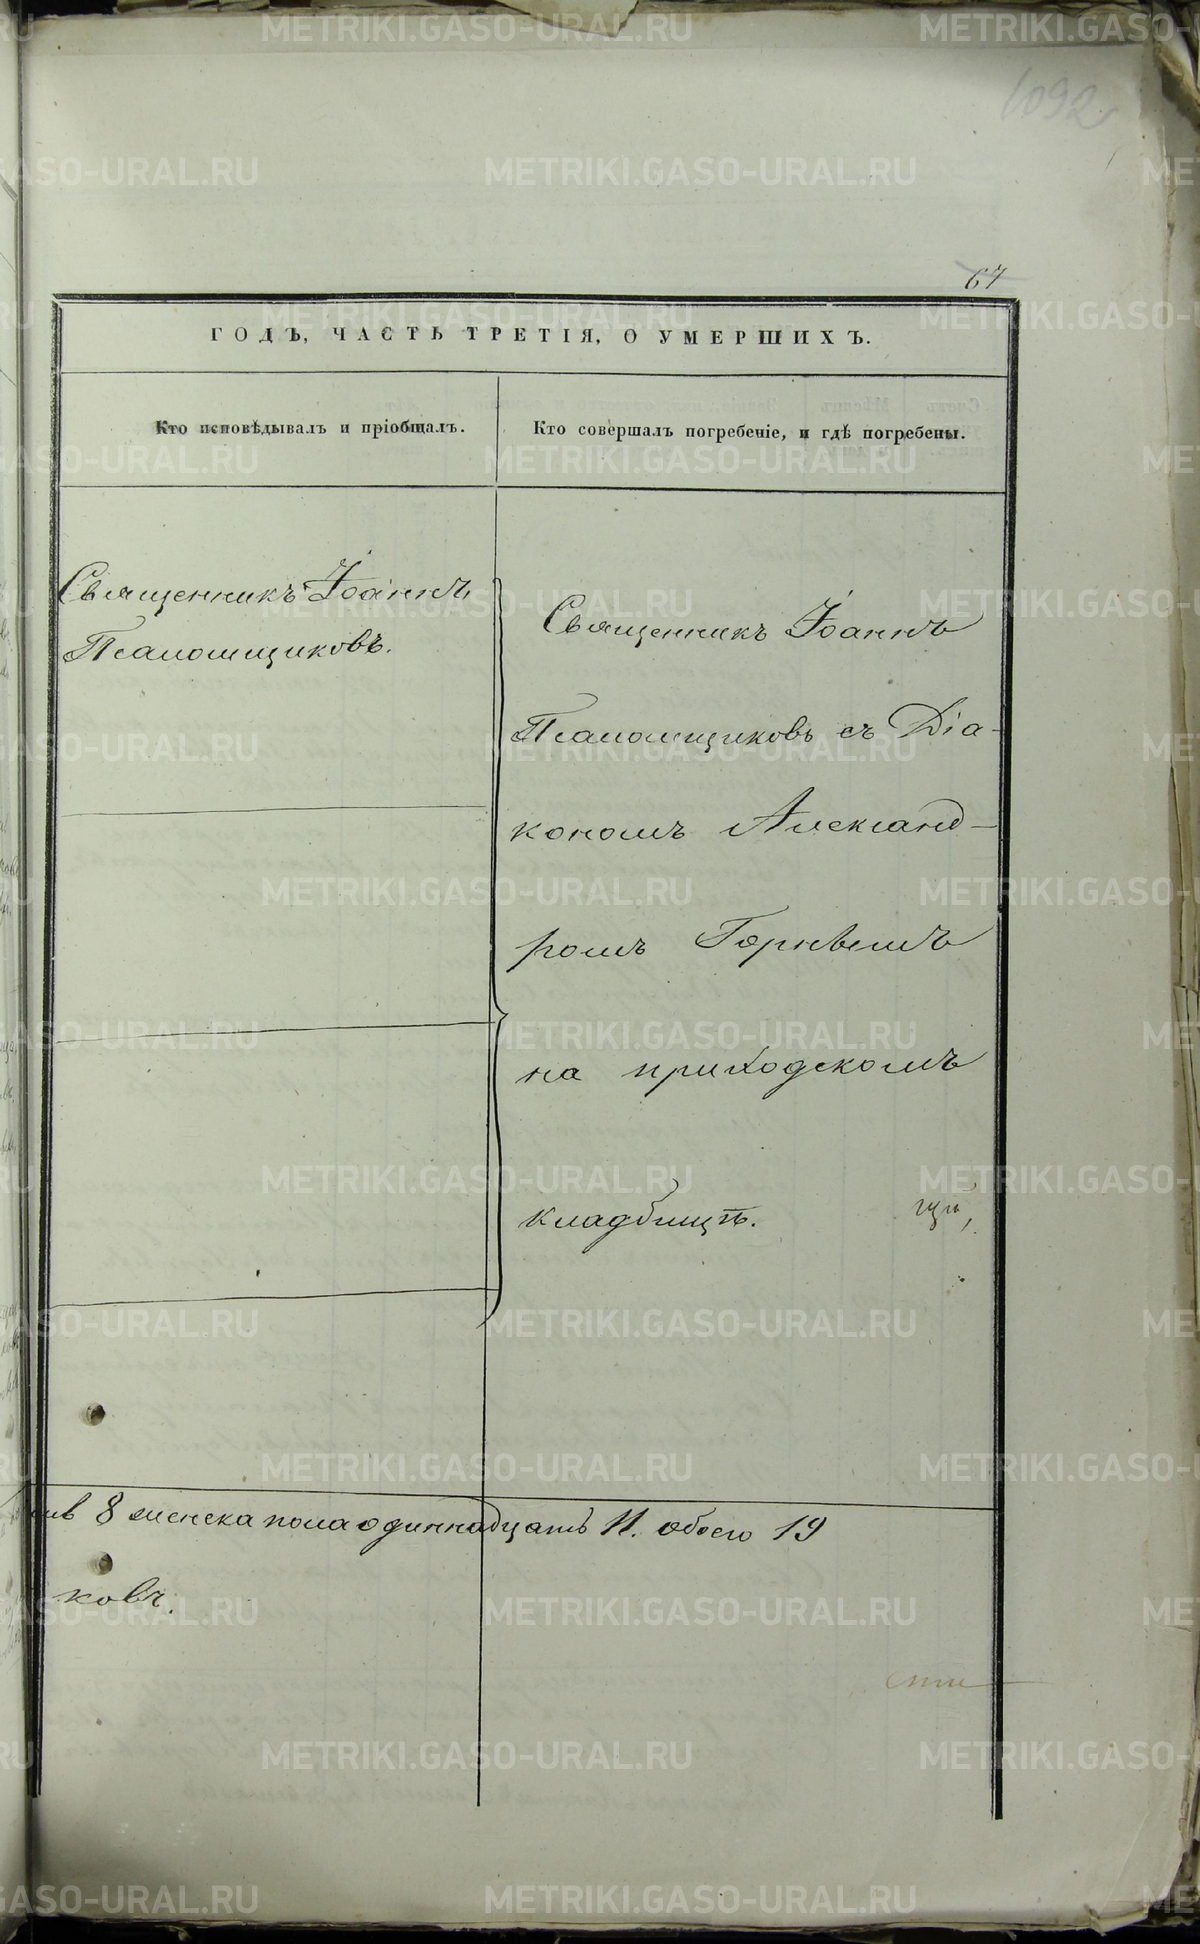 1092
67
ГОДЪ, ЧАСТЬ ТРЕТІЯ, О УМЕРШИХЪ.
Кто исповѣдывалъ и пріобщалъ.
Кто совершалъ погребеніе, и гдѣ погребены.
Священникъ Іоаннъ
Псаломщиковъ.
Священникъ Іоаннъ
Псаломщиковъ съ Діа-
кономъ Александ-
ромъ
на приходскомъ
кладбищѣ.
8 женска пола одиннадцать 11. обоего 19
ковъ.
METRIKI.GASO-URAL.RU